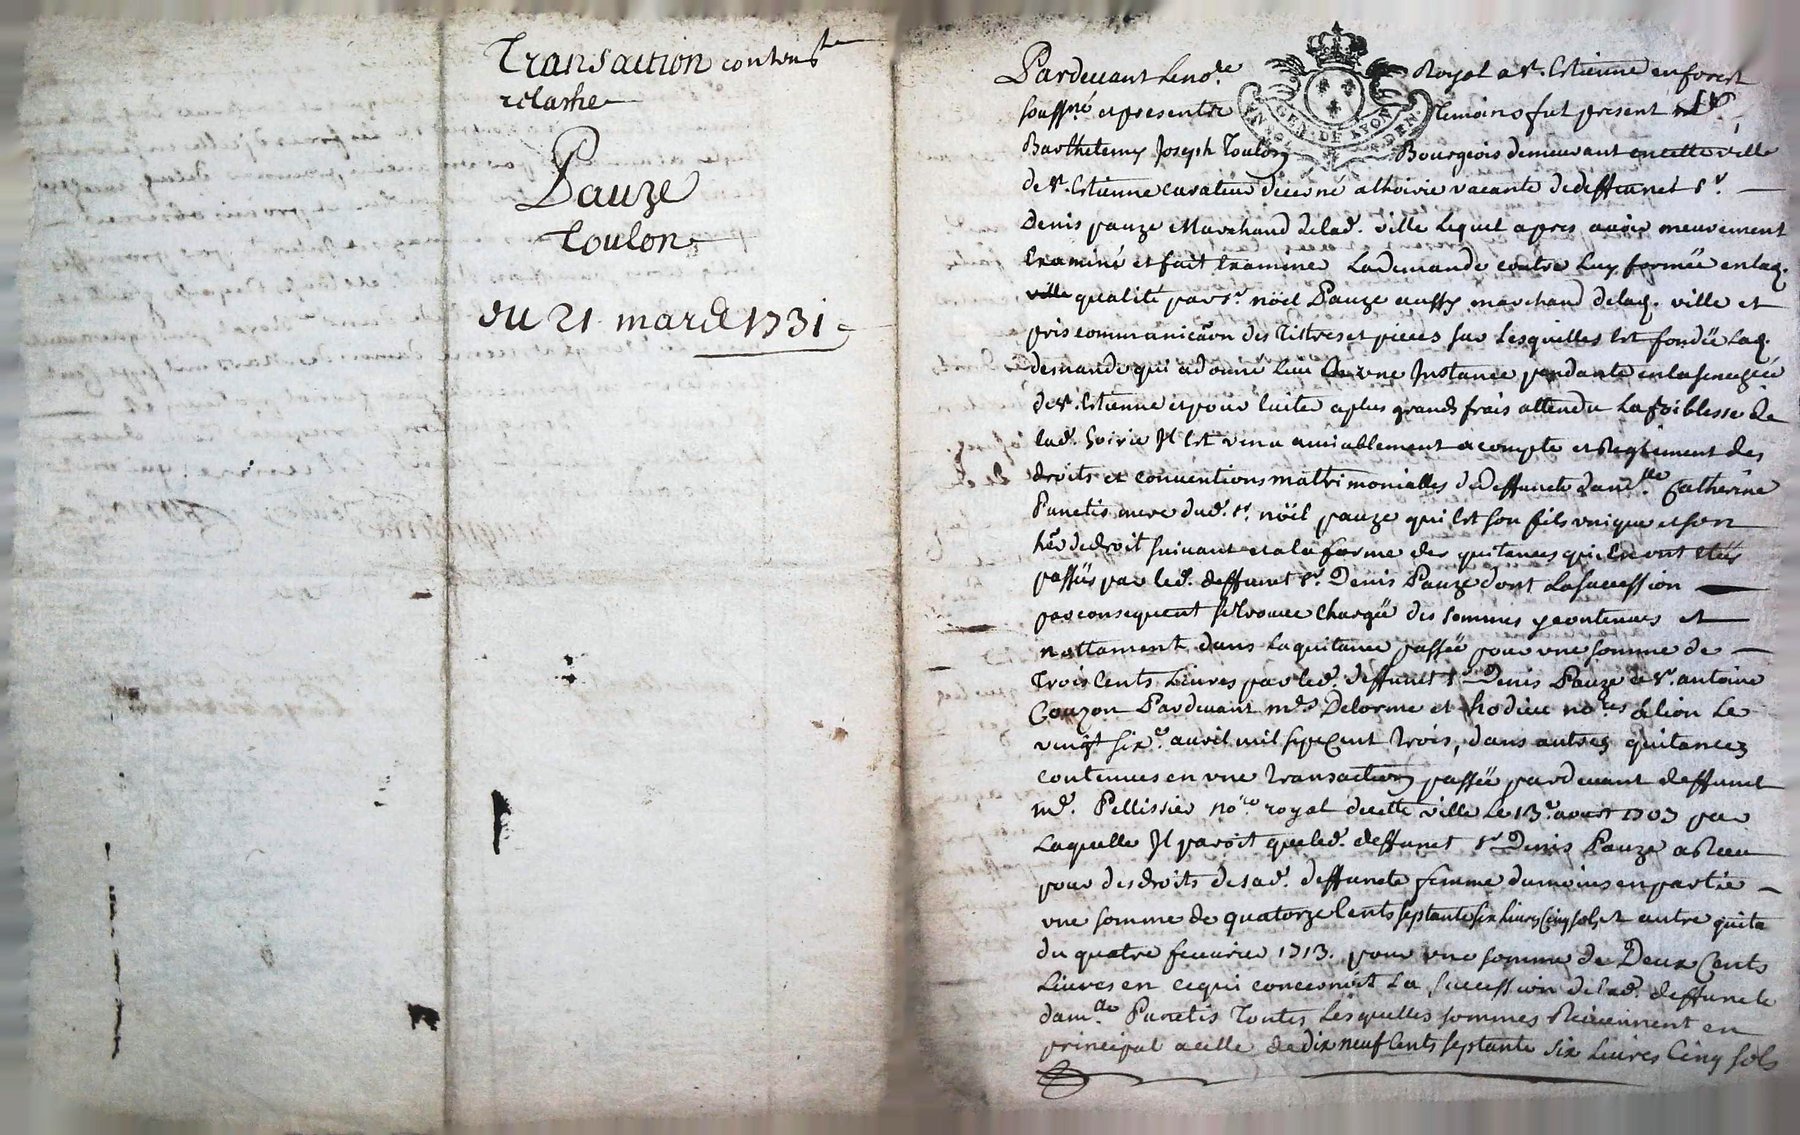 Transaction conten.te
relache
Pauze
Toulon
du 21 mars 1731
Pardevant Le no.re Royal a St. Estienne en forest
souss.né et presents temoins fut present Sr.
GEN. DE LYON
Barthelemy Joseph Toulon Bourgeois demeurant en cette ville
de St. Estienne curateur decerné a l'hoirie vacante de deffunct Sr.
Denis pauze Marchand de lad. ville Lequel apres avoir meurement
Examiné et fait Examiner La demande contre Luy formée en lad.
ville qualité par Sr. nöel Pauze aussy marchand de lad. ville et
pris communicaon des Tittres et pieces sur Lesquelles Est fondée Lad.
demande qui a donné Lieu a une Instance pendante en la senechée
de St. Estienne et pour Eviter a plus grands frais attendu La foiblesse de
lad. hoirie Il Est venu amiablement a compte et Reglement des
droits et conventions matrimonialles de deffuncte dam.lle Catherine
Panetis mere dud. Sr. nöel pauze qui Est son fils unique et son
her de droit suivant et a la forme des quitances qui En ont Etés
passéës par led. deffunct Sr. Denis Pauze dont La succession
par consequent se trouve Chargée des sommes y contenues et
nottament dans La quitance passée pour une somme de
Trois Cents Livres par led. deffunct Sr. Denis Pauze a Sr. antoine
Couzon Pardevant m.es Delorme et hodieu no.res a Lion Le
vingt six.e avril mil sept Cent trois, dans autres quitances
contenues en une transaction passée pardevant deffunct
m.e Pellissier no.re royal de cette ville Le 13.e aoust 1703 par
Laquelle Il paroit que led. deffunct Sr Denis Pauze a Receu
pour des droits de sad. deffuncte femme du moins en partie
une somme de quatorze Cents septante six Livres Cinq sols et autre quita
du quatre fevrier 1713. pour une somme de Deux Cents
Livres en ce qui concernoit La succession de lad. deffuncte
dam.lle Panetis Toutes Lesquelles sommes Reviennent en
principal a celle de dix neuf Cents septante six Livres Cinq sols